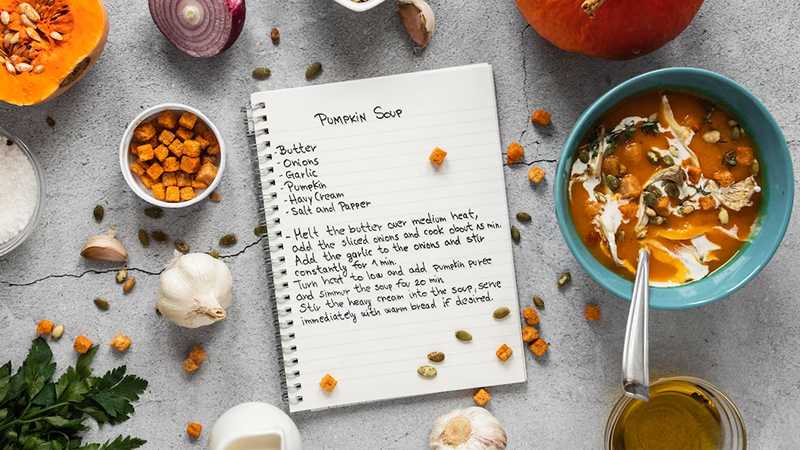 Pumpkin Soup
-Butter
-Onions
-Garlic
-Pumpkin
-Havy Cream
-Salt and Papper
-Melt the butter over medium heat,
add the sliced onions and cook about 15 min.
Add the garlic to the onions and stir
constantly for 1 min.
Turn heat to low and add pumpkin puree
and simmur the soup for 20 min.
Stir the heavy cream into the soup, serve
immediately with warm bread if desired.